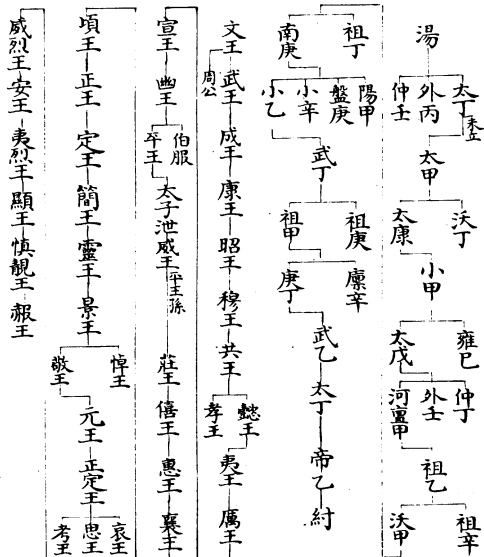 湯
太丁 未立
外丙
仲壬
太甲
沃丁
太康
小甲
雍已
太戊
仲丁
外壬
河亶甲
祖乙
祖辛
沃甲
祖丁
南庚
陽甲
盤庚
小辛
小乙
武丁
祖庚
祖甲
廩辛
庚丁
武乙
太丁
帝乙
紂
文王
武王
周公
成王
康王
昭王
穆王
共王
懿王
孝王
夷王
厲王
宣王
幽王
伯服
平王
太子泄
威王 平王孫
莊王
僖王
惠王
襄王
頃王
正王
定王
簡王
靈王
景王
悼王
敬王
元王
正定王
哀王
思王
考王
威烈王
安王
夷烈王
顯王
慎靚王
赧王